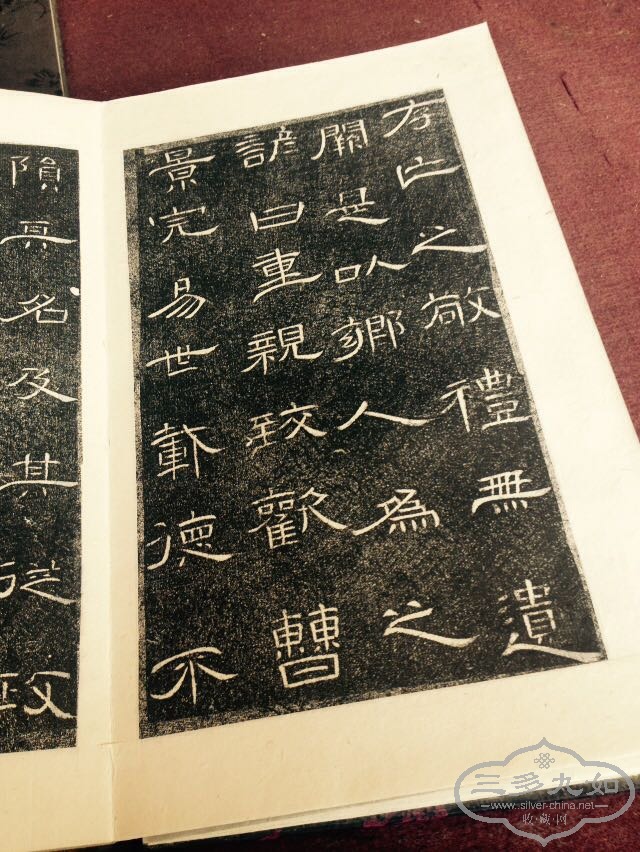 存亡之敬禮無遺
闕是以鄉人為之
諺曰重親致歡曹
景完易世載德不
隕其名及其從政
三多九如
www.silver-china.net
收藏·网